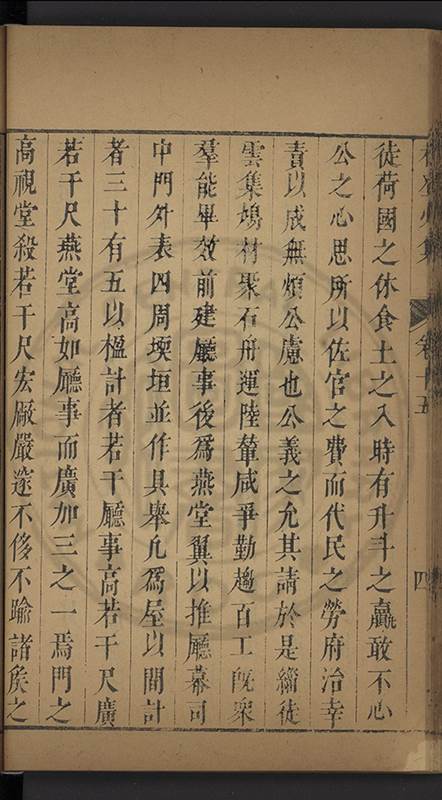 卷十五
四
徒荷國之休食土之入時有升斗之贏敢不心
公之心思所以佐官之費而代民之勞府治幸
責以成無煩公慮也公義之允其請於是緇徒
雲集鳩材聚石舟運陸輦咸爭勤趨百工既眾
羣能畢效前建廳事後爲燕堂翼以推廳幕司
中門外表四周堧垣並作具舉凡爲屋以間計
者三十有五以楹計者若干廳事高若干尺廣
若干尺燕堂高如廳事而廣加三之一焉門之
高視堂殺若干尺宏厰嚴邃不侈不踰諸矦之